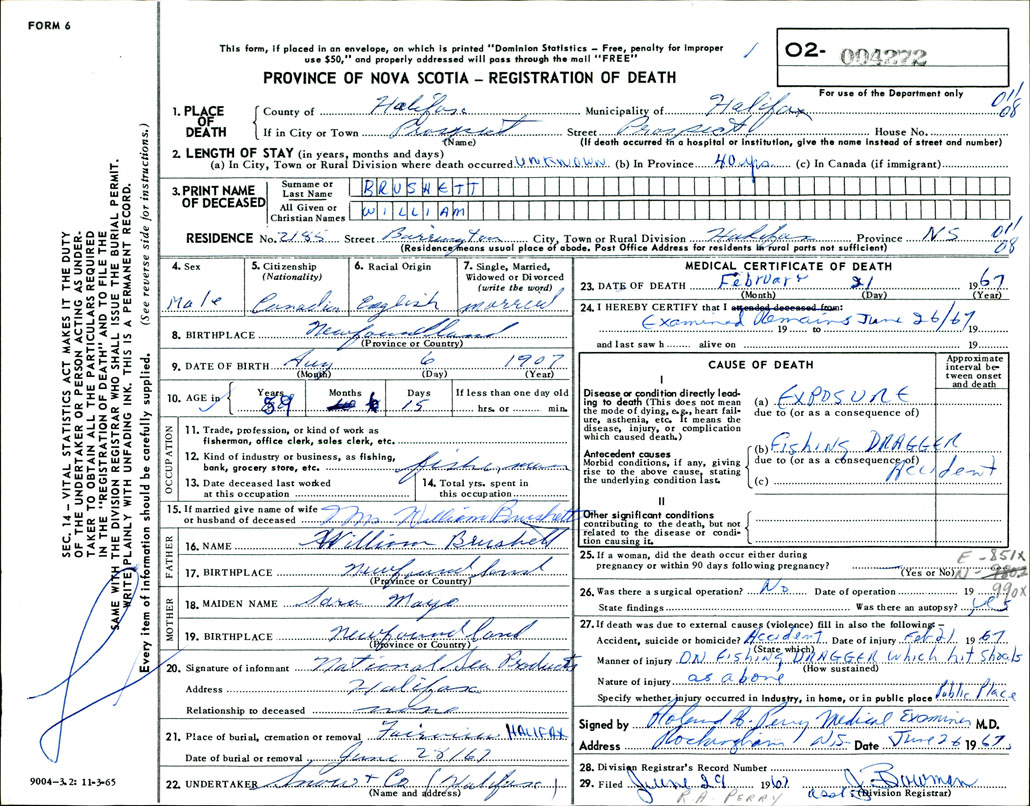 FORM 6
This form, if placed in an envelope, on which is printed "Dominion Statistics – Free, penalty for improper
use $50," and properly addressed will pass through the mail "FREE"
PROVINCE OF NOVA SCOTIA – REGISTRATION OF DEATH
O2- 004272
For use of the Department only
01/08
1. PLACE OF DEATH
County of Halifax Municipality of Halifax
If in City or Town Prospect Street Prospect House No.
(Name) (If death occurred in a hospital or institution, give the name instead of street and number)
2. LENGTH OF STAY (in years, months and days)
(a) In City, Town or Rural Division where death occurred UNKNOWN (b) In Province 40 yrs (c) In Canada (if immigrant)
3. PRINT NAME OF DECEASED
Surname or Last Name BRUSHETT
All Given or Christian Names WILLIAM
RESIDENCE No. 2185 Street Barrington City, Town or Rural Division Halifax Province NS
01/08
(Residence means usual place of abode. Post Office Address for residents in rural parts not sufficient)
4. Sex Male
5. Citizenship (Nationality) Canadian
6. Racial Origin English
7. Single, Married, Widowed or Divorced (write the word) married
8. BIRTHPLACE Newfoundland
(Province or Country)
9. DATE OF BIRTH Aug 6 1907
(Month) (Day) (Year)
10. AGE in Years 59 Months 6 Days 15 If less than one day old hrs. or min.
OCCUPATION
11. Trade, profession, or kind of work as fisherman, office clerk, sales clerk, etc.
12. Kind of industry or business, as fishing, bank, grocery store, etc. fisherman
13. Date deceased last worked at this occupation
14. Total yrs. spent in this occupation
15. If married give name of wife or husband of deceased Mrs William Brushett
FATHER
16. NAME William Brushett
17. BIRTHPLACE Newfoundland
(Province or Country)
MOTHER
18. MAIDEN NAME Sara Mayo
19. BIRTHPLACE Newfoundland
(Province or Country)
20. Signature of informant National Sea Products
Address Halifax
Relationship to deceased none
21. Place of burial, cremation or removal Fairview HALIFAX
Date of burial or removal June 28/67
22. UNDERTAKER Snow & Co (Halifax)
(Name and address)
MEDICAL CERTIFICATE OF DEATH
23. DATE OF DEATH February 21 1967
(Month) (Day) (Year)
24. I HEREBY CERTIFY that I attended deceased from:
Examined Remains June 26/67
19 to 19
and last saw h alive on 19
CAUSE OF DEATH
Approximate interval between onset and death
I
Disease or condition directly leading to death (This does not mean the mode of dying, e.g., heart failure, asthenia, etc. It means the disease, injury, or complication which caused death.)
(a) EXPOSURE
due to (or as a consequence of)
Antecedent causes
Morbid conditions, if any, giving rise to the above cause, stating the underlying condition last.
(b) Fishing DRAGGER
due to (or as a consequence of) Accident
(c)
II
Other significant conditions
contributing to the death, but not related to the disease or condition causing it.
25. If a woman, did the death occur either during pregnancy or within 90 days following pregnancy? (Yes or No)
E - 851X
N - 990X
26. Was there a surgical operation? No Date of operation 19
State findings Was there an autopsy? yes
27. If death was due to external causes (violence) fill in also the following:–
Accident, suicide or homicide? Accident Date of injury Feb 21 1967
(State which)
Manner of injury ON Fishing DRAGGER which hit Shoals
(How sustained)
Nature of injury as above
Specify whether injury occurred in industry, in home, or in public place Public Place
Signed by Roland B. Perry Medical Examiner M.D.
Address Rockingham NS Date June 26 1967
28. Division Registrar's Record Number
29. Filed June 29 1967 J. Bowman
asst. (Division Registrar)
R.A. PERRY
SEC. 14 – VITAL STATISTICS ACT MAKES IT THE DUTY
OF THE UNDERTAKER OR PERSON ACTING AS UNDER-
TAKER TO OBTAIN ALL THE PARTICULARS REQUIRED
IN THE "REGISTRATION OF DEATH" AND TO FILE THE
SAME WITH THE DIVISION REGISTRAR WHO SHALL ISSUE THE BURIAL PERMIT.
WRITE PLAINLY WITH UNFADING INK. THIS IS A PERMANENT RECORD.
Every item of information should be carefully supplied. (See reverse side for instructions.)
9004-3.2: 11-3-65